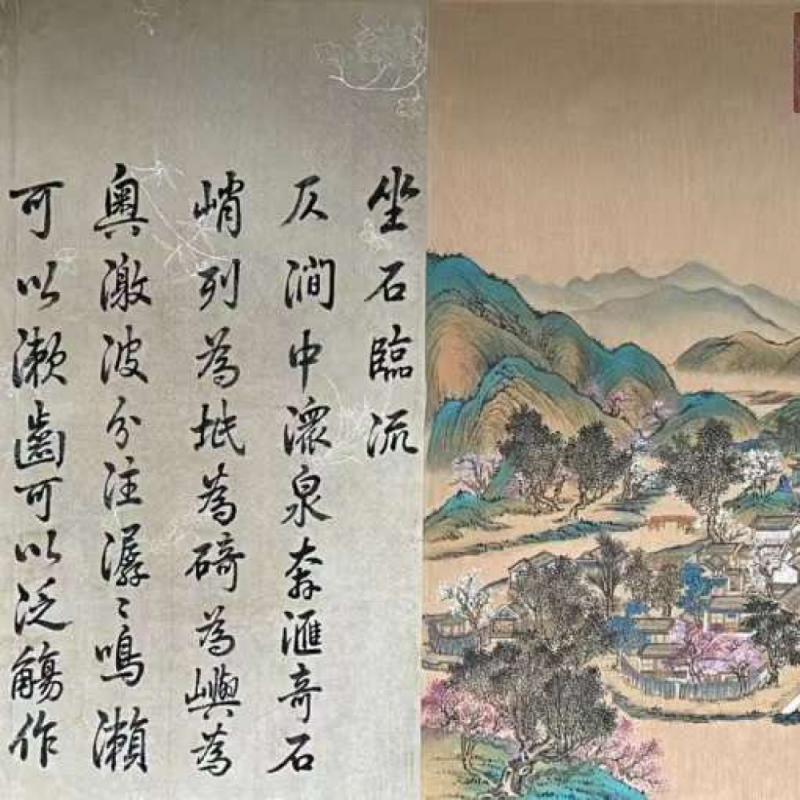 坐石臨流
仄澗中瀠泉奔滙奇石
峭列為坻為碕為嶼為
奥激波分注潺〻鳴瀨
可以漱齒可以泛觴作